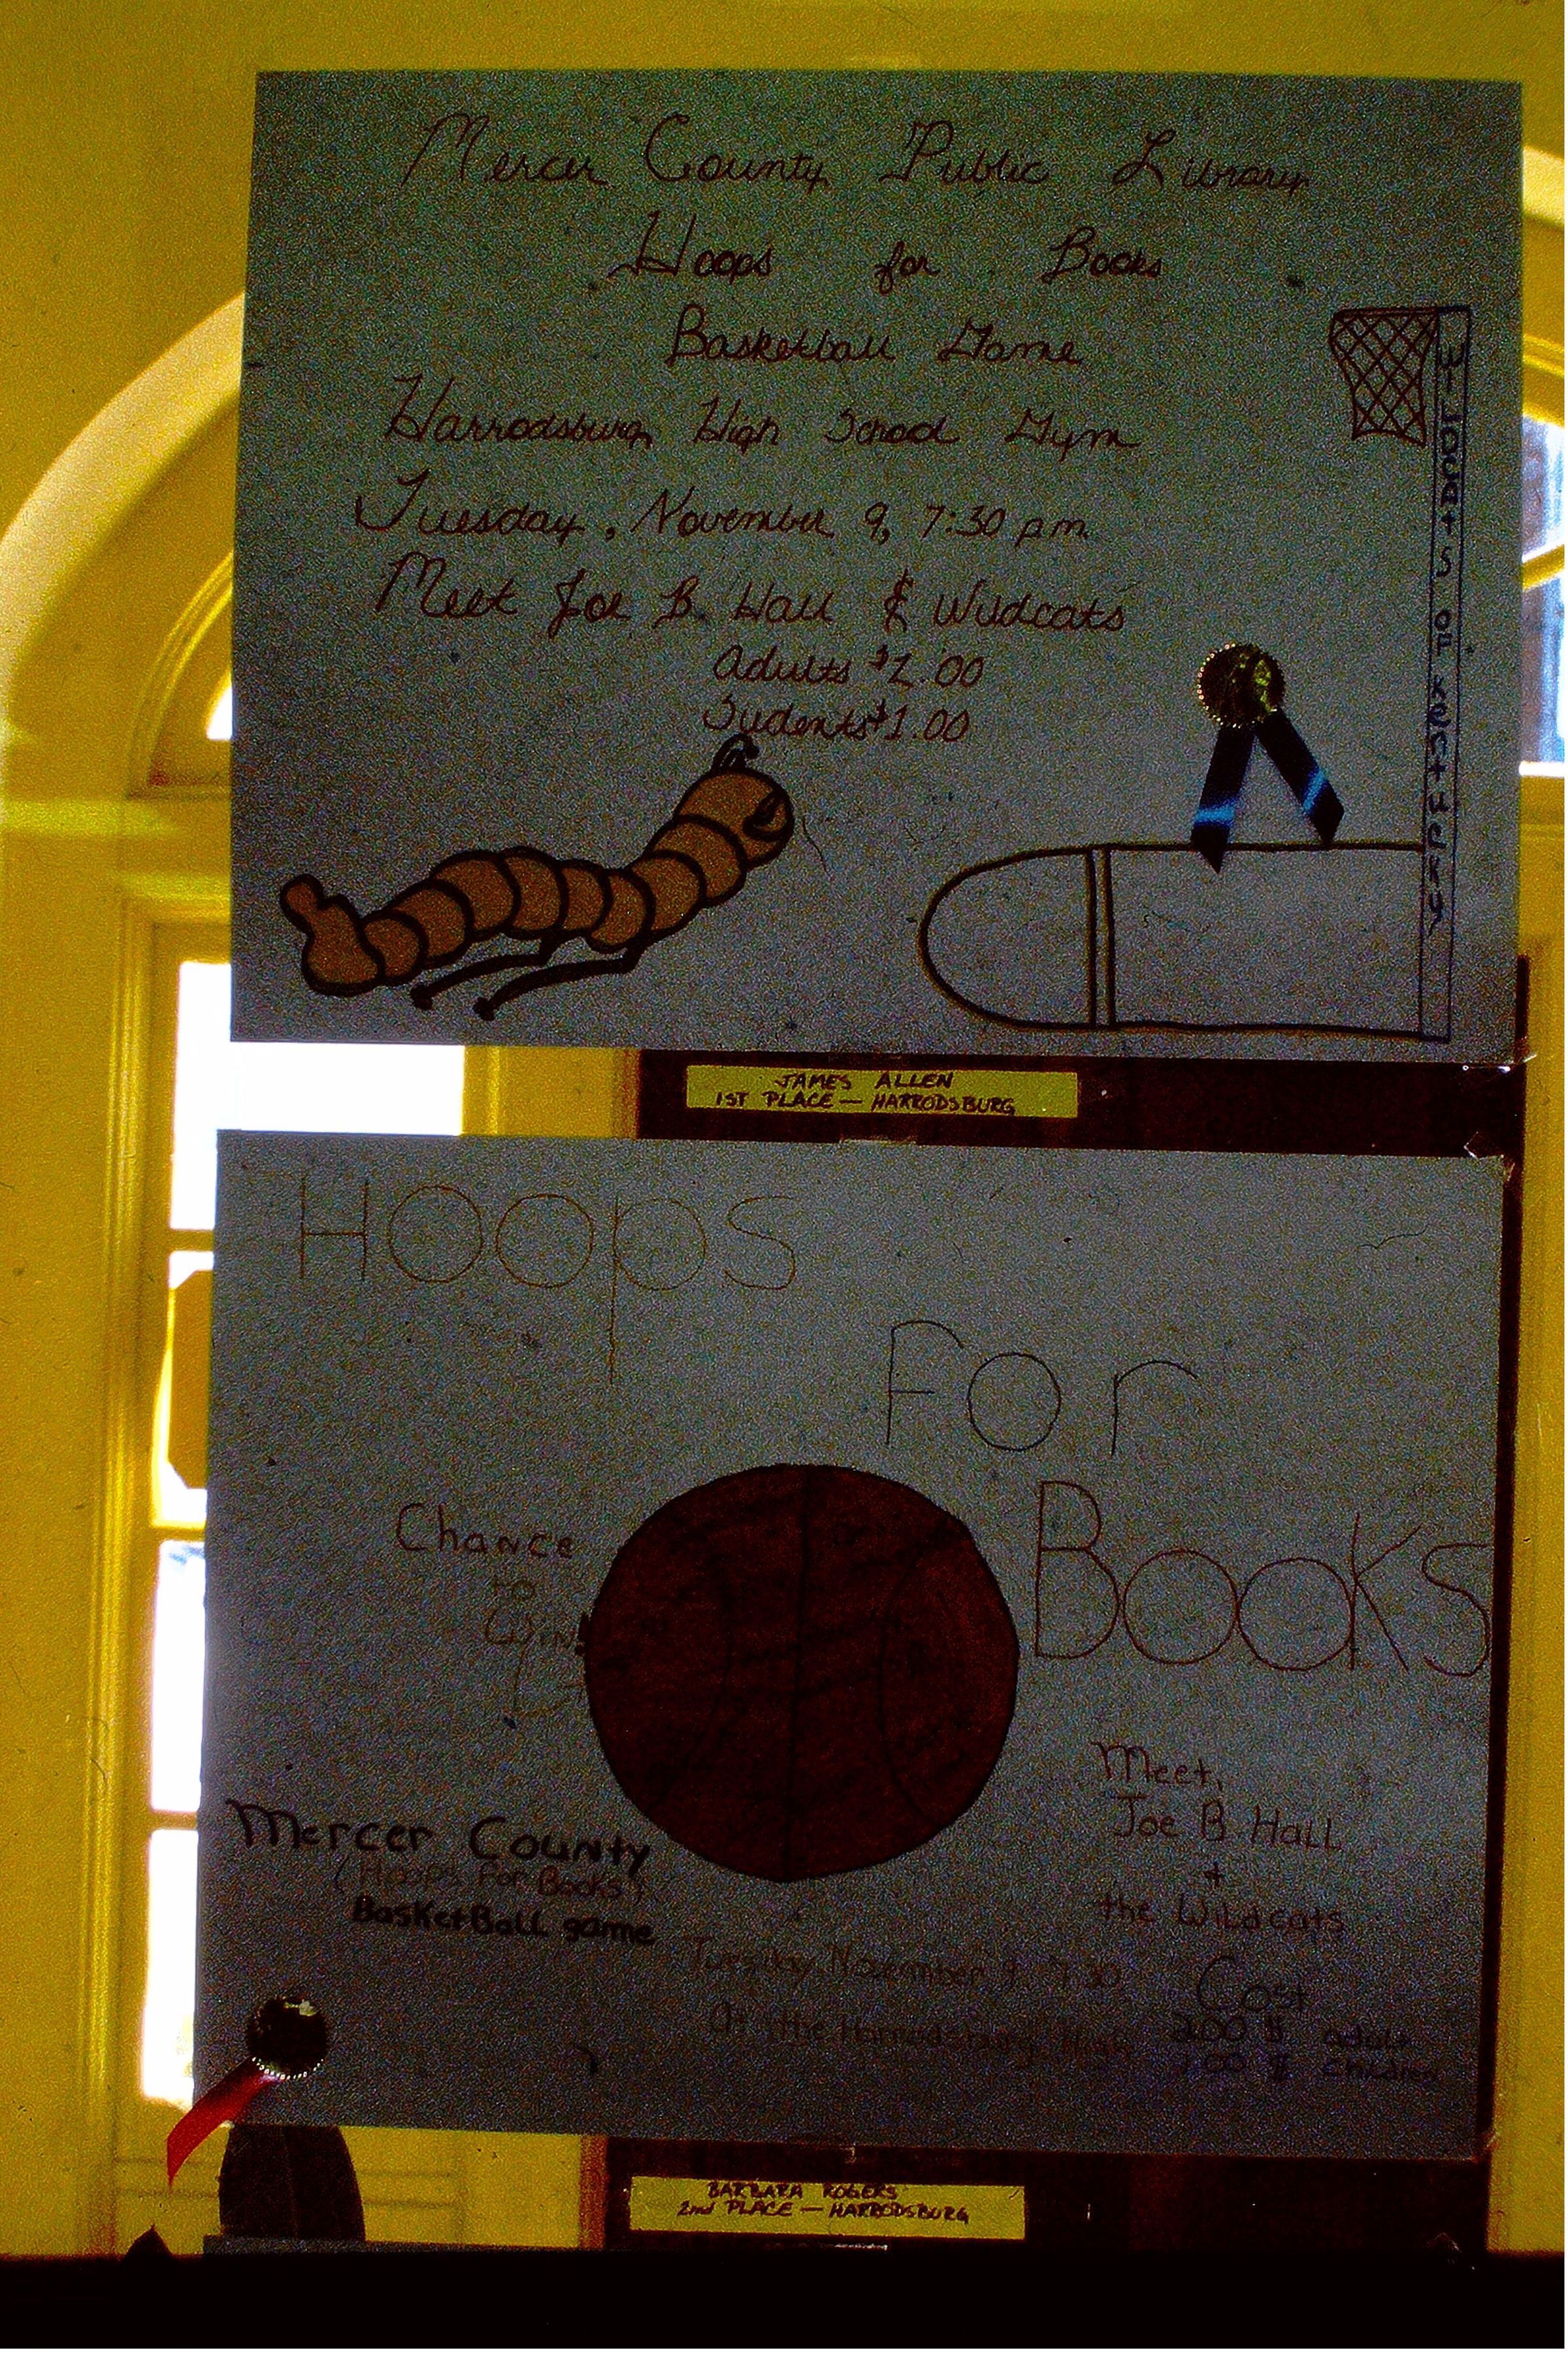 Mercer County Public Library
Hoops for Books
Basketball Game
Harrodsburg High School Gym
Tuesday, November 9, 7:30 p.m.
Meet Joe B. Hall & Wildcats
Adults $2.00
Sudents $1.00
WILDCATS OF KENTUCKY
JAMES ALLEN
1ST PLACE — HARRODSBURG
HOOpS
For
BOOKS
Chance
to
Win!
Meet,
Joe B. HALL
+
the WILdcats
Mercer County
(Hoops For Books)
BasKetBall game
Tuesday, November 9, 7:30
At the Harrodsburg High
Cost
2.00 $ adult
1.00 $ children
BARBARA ROGERS
2nd PLACE — HARRODSBURG